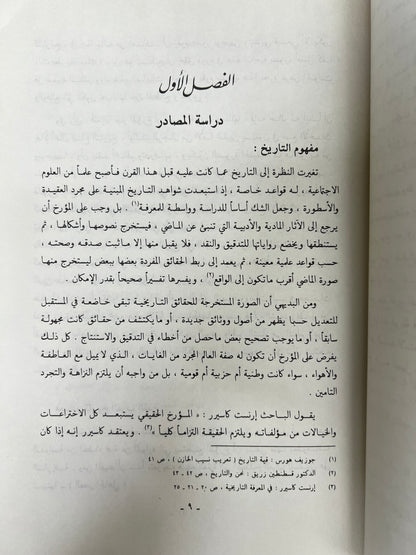 الفصل الأول
دراسة المصادر
مفهوم التاريخ :
تغيرت النظرة إلى التاريخ عما كانت عليه قبل هذا القرن فأصبح علماً من العلوم
الاجتماعية ، له قواعد خاصة ، إذ استبعدت شواهد التاريخ المبنية على مجرد العقيدة
والأسطورة ، وجعل الشك أساساً للدراسة وواسطة للمعرفة(١) . بل وجب على المؤرخ أن
يرجع إلى الآثار المادية والأدبية التي تنبئ عن الماضي ، فيستخرج نصوصها وأشكالها ، ثم
يستنطقها ويخضع رواياتها للتدقيق والنقد ، فلا يقبل منها إلا ماثبت صدقه وصحته ،
حسب قواعد علمية معينة ، ثم يعمد إلى ربط الحقائق المفردة بعضها ببعض ليستخرج منها
صورة الماضي أقرب ماتكون إلى الواقع(٢) ، ويفسرها تفسيراً صحيحاً بقدر الإمكان .
ومن البديهي أن الصورة المستخرجة للحقائق التاريخية تبقى خاضعة في المستقبل
للتعديل حسبا يظهر من أصول ووثائق جديدة ، أو مايكتشف من حقائق كانت مجهولة
سابقاً ، أو ما يوجب تصحيح بعض ماحصل من أخطاء في التدقيق والاستنتاج . كل ذلك
يفرض على المؤرخ أن تكون له صفة العالم المجرد من الغايات ، الذي لا يميل مع العاطفة
والأهواء ، سواء كانت وطنية أم حزبية أم قومية ، بل من واجبه أن يلتزم النزاهة والتجرد
التامين .
يقول الباحث إرنست كاسيرر : « المؤرخ الحقيقي يستبعد كل الاختراعات
والخيالات من مؤلفاته ويلتزم الحقيقة التزاماً كلياً »(٣) . ويعتقد كاسيرر إنه إذا كان
(١) جوزيف هورس : قيمة التاريخ ( تعريب نسيب الخازن ) ، ص ٤١
(٢) الدكتور قسطنطين زريق : نحن والتاريخ ، ص ٤٢ ـ ٤٣
(٣) إرنست كاسيرر : في المعرفة التاريخية ، ص ٢٠ ـ ٢١ ـ ٢٥
ـ ٩ ـ